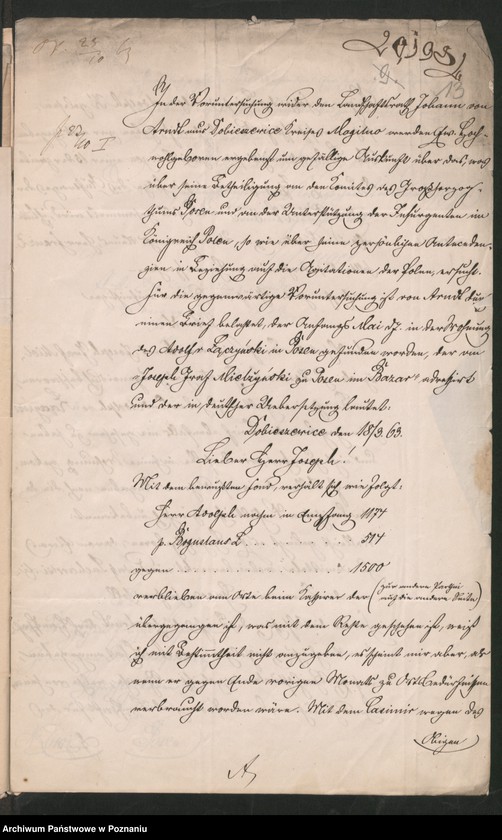 29193
9.
13
In der Voruntersuchung wider den Landschaftsrath Johann von
Arndt aus Dobieszewice Kreises Mogilno werden Ew. Hoch-
wohlgeboren ergebenst um gefällige Auskunft über das, was
über seine Betheiligung an den Komites des Großherzog-
thums Posen und an der Unterstützung der Insurgenten im
Königreich Polen, so wie über seine persönlichen Anteceden-
zien in Beziehung auf die Agitationen der Polen, ersucht.
Für die gegenwärtige Voruntersuchung ist von Arndt durch
einen Brief belastet, der Anfangs Mai d. J. in der Wohnung
des Adolf v Łączyński in Posen gefunden worden, der an
Joseph Graf Mielżyński zu Posen im "Bazar" adressirt
und der in deutscher Uebersetzung lautet:
Dobieszewice den 18/3. 63.
Lieber Herr Joseph!
Mit dem benutzten Fond, verhält sich wie folgt:
Herr Adolph nahm in Empfang 1174
p. Boguslaus Ł 514
gegen 1500
verblieben am Orte beim Kassirer der (zur andere Parthei
auf die andere Seite)
übergegangen ist, was mit dem Reste geschehen ist, weiß
ich mit Bestimmtheit nicht anzugeben, es scheint mir aber, als
wenn er gegen Ende vorigen Monats zu Ortsbedürfnissen
verbraucht worden wäre. Mit dem Casimir wegen des
Obigen
Archiwum Państwowe w Poznaniu